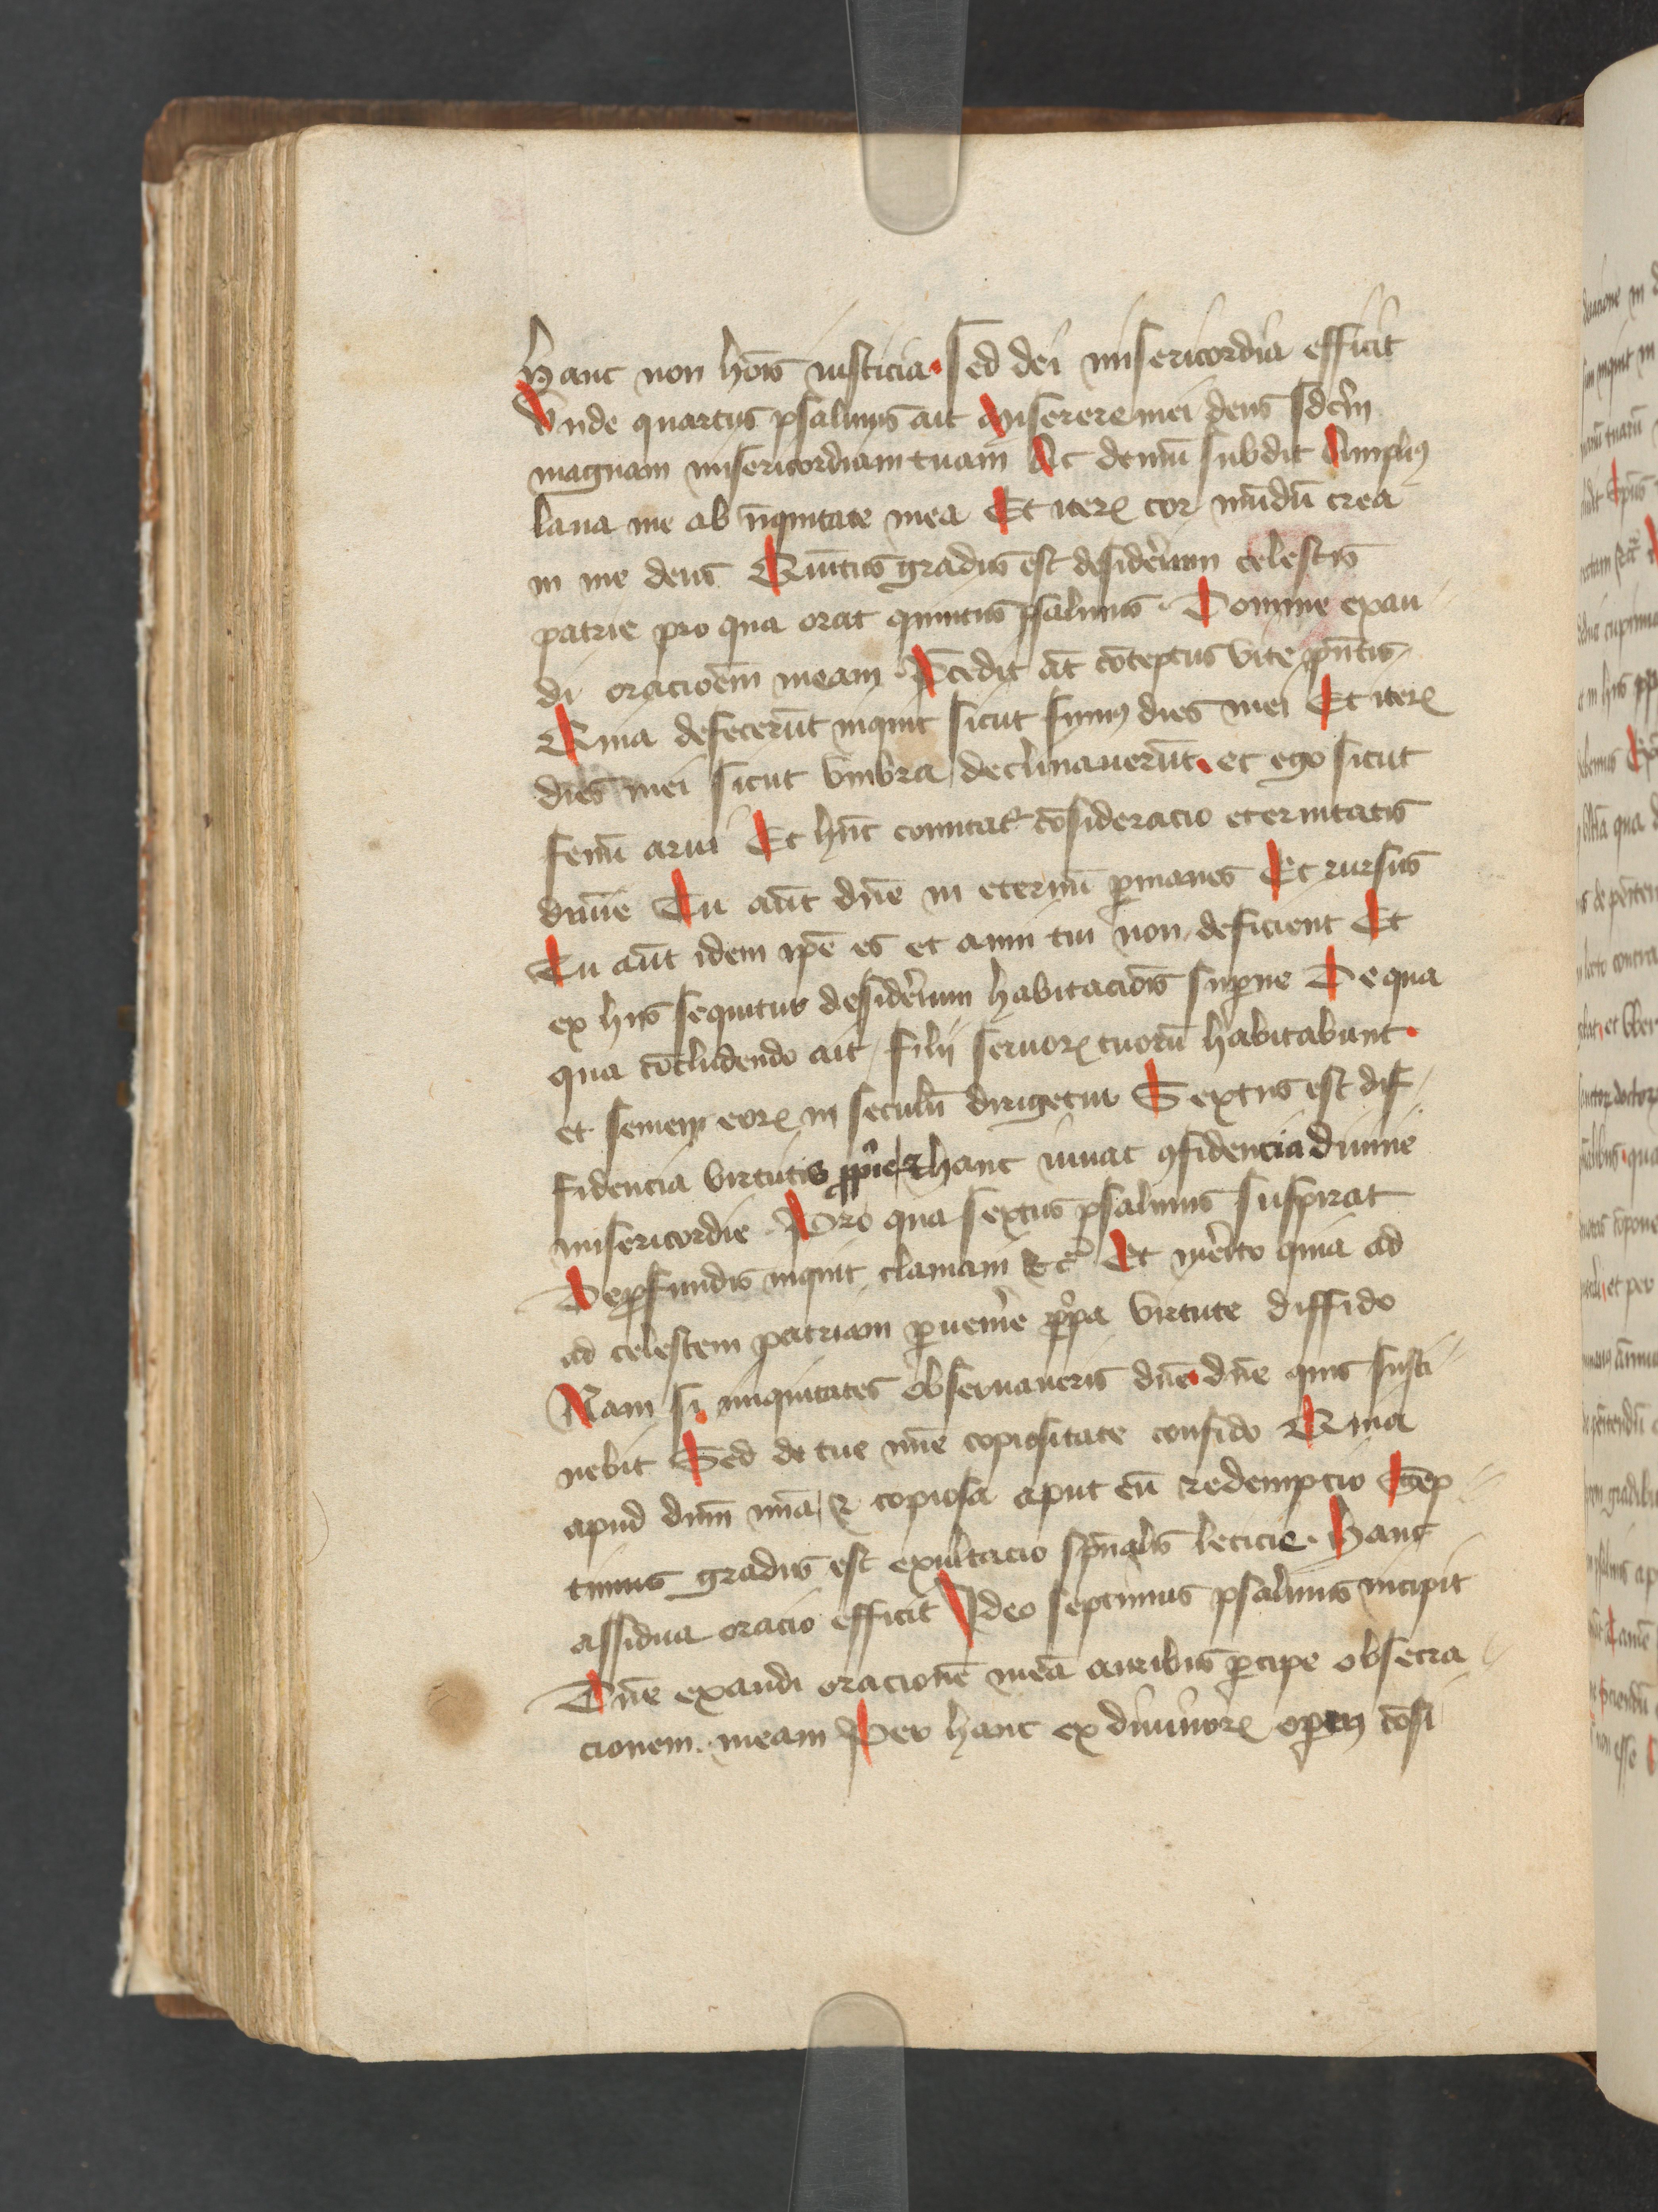 Hanc non hoīs iusticia. Sed dei misericordia efficit
Vnde quartus psalmus ait Miserere mei deus scdm̄
magnam misericordiam tuam Ac demū subdit Ampliꝰ
laua me ab īiquitate mea Et iteꝝ cor mūdū crea
in me deus Quītus gradus est desiderium celestis
patrie pro qua orat quintus psalmus. Domine exau
di oracioēm meam. P̄cedit aūt cōteptus vite pn̄tis
Quia defecerūt inquit sicut fumꝰ dies mei Et iteꝝ
dies mei sicut vmbra declinauerūt. et ego sicut
fenū arui Et hūc comitatᷣ cōsideracio eternitatis
diuīe Tu aūt dn̄e in eternū ꝑmanes Et rursus
Tu aūt idem ip̄e es et anni tui non deficient Et
ex hiis sequitur desiderium habitaciōis supͥne De qua
qua cōcludendo ait filij seruoꝝ tuorū habitabunt.
et semen eoꝝ in seculū dirigetur Sextus est dif
fidencia virtutis ꝓprie ⁊ hanc iuuat ꝯfidencia diuine
misericordie. Pro qua sextus psalmus suspirat
De ꝓfundis inquit clamaui ⁊cͣ Et merito quia ad
ad celestem patriam ꝑuenire ꝓpͥa virtute diffido
Nam si iniquitates obseruaueris dn̄e. dn̄e quis susti
nebit Sed de tue mīe copiositate confido Quia
apud dnm̄ mīa ⁊ copiosa aput eū redempcio Sep
timus gradus est exultacio spūalis leticie. Hanc
assidua oracio efficit Ideo septimus psalmus incipit
Dn̄e exaudi oracionē meā auribus ꝑcipe obsecra
cionem meam Per hanc ex diuinoꝝ opeꝝ cōsi